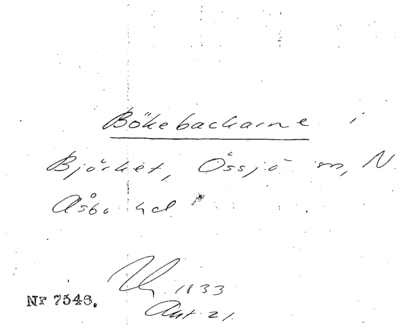 Bökebackarne i
Björket, Össjö sn, N.
Åsbo hd.
1833
Akt 21
Nr 7546.